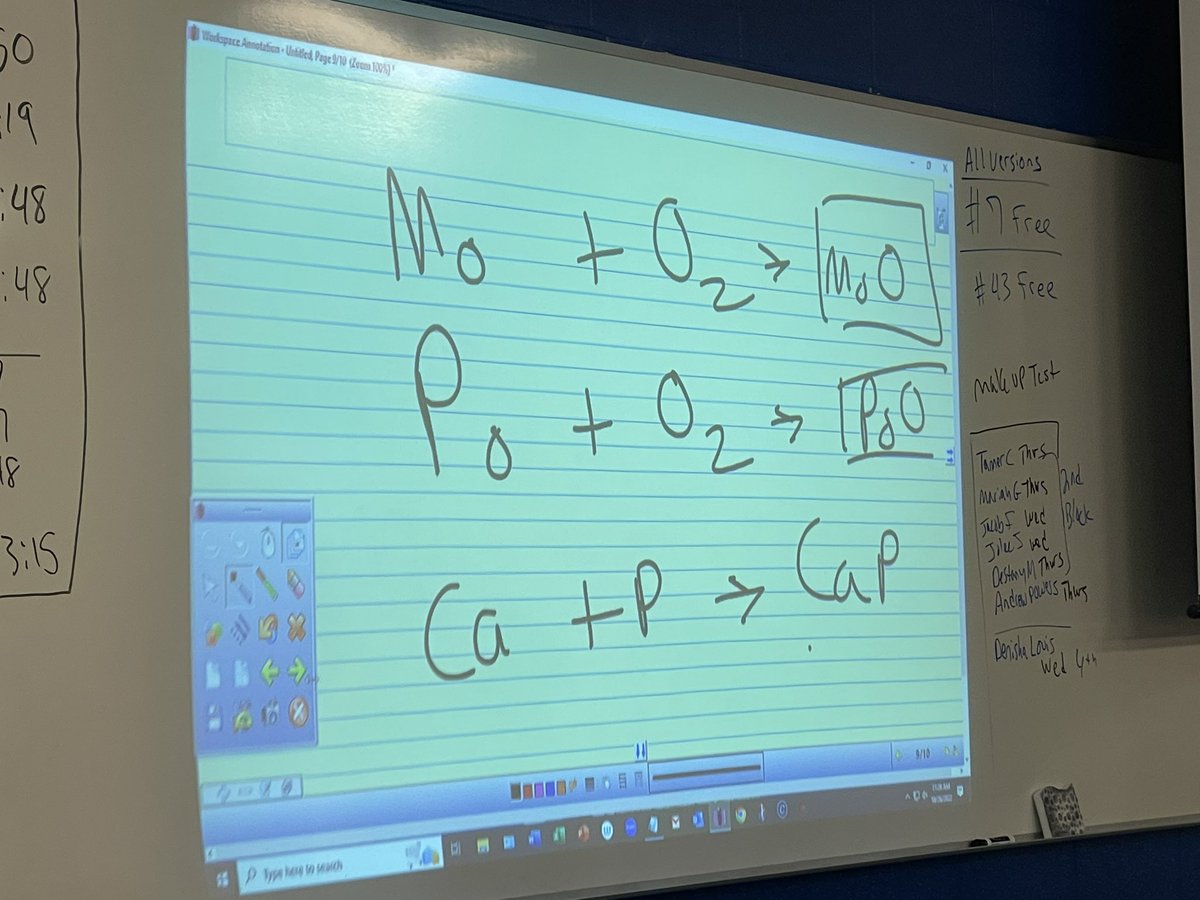 50
:19
:48
:48
18
3:15
Workspace Annotation - Untitled, Page 9/10 (Zoom 100%) *
Mo + O2 → MoO
Po + O2 → PoO
Ca + P → CaP
9/10
Type here to search
All Versions
#7 Free
#43 Free
Make up Test
Tamer C Thrs
Mariah G Thrs
Jacob F Wed
Jilee J Wed
Destiny M Thurs
Andrew Powers Thurs
2nd
Block
Denisha Louis
Wed 4th